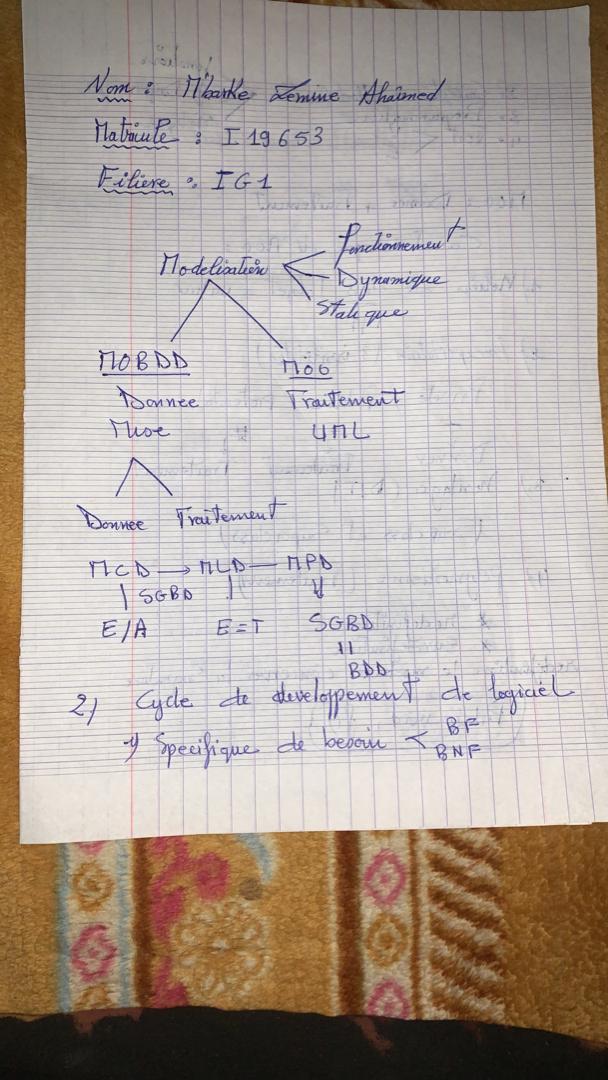 Nom : M'barke Lemine Ahaimed
Matricule : I19653
Filiere : IG1
Fonctionnement
Modelisation
Dynamique
Statique
MOBDD
MOO
Donnee
Traitement
UML
Donnee Traitement
MCD → MLD — MPD
SGBD
E/A E=T SGBD
BDD
2) Cycle de developpement de logiciel
1) Specifique de besoin < BF
BNF